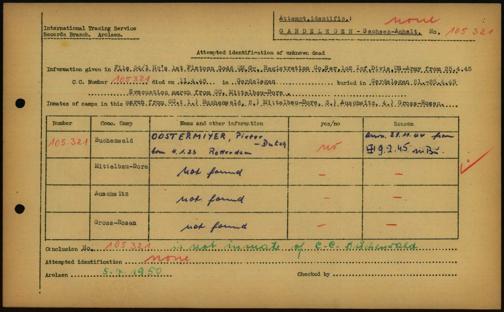 International Tracing Service
Records Branch. Arolsen.
Attempt.identific.: none
GARDELEGEN - Sachsen-Anhalt. No. 105 321
Attempted identification of unknown dead
Information given in File 24/1 No's 1st Platoon Co. Registration US-Army from 25.4.45
C.C. Number 105321 died on 11.4.45 in Gardelegen buried in Gardelegen 21.-25.4.45
Evacuation march from CC. Mittelbau-Dora.
Inmates of camps in this march from CC. 1.) Buchenwald, 2.) Mittelbau-Dora, 3.) Auschwitz, 4.) Gross-Rosen.
Number Conc. Camp Name and other information yes/no Reason
105.321 Buchenwald OOSTERMIYER, Pieter - Dutch no from
born 4.1.23 Rotterdam 9.2.45 in Bu.
Mittelbau-Dora not found —
Auschwitz not found —
Gross-Rosen not found —
Conclusion No. 105321 is not inmate of C.C. Buchenwald
Attempted identification none
Arolsen 5.7.1950 Checked by